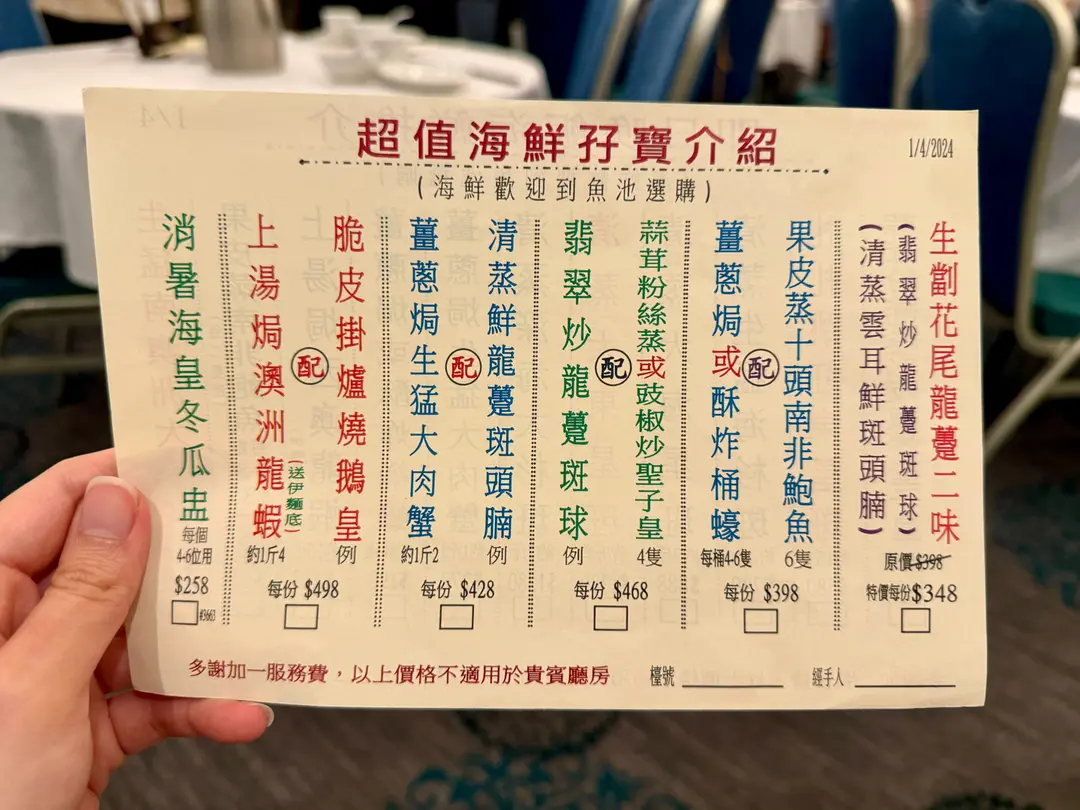 超值海鮮孖寶介紹
1/4/2024
(海鮮歡迎到魚池選購)
生劏花尾龍躉二味
(翡翠炒龍躉斑球)
(清蒸雲耳鮮斑頭腩)
原價$398
特價每份$348
果皮蒸十頭南非鮑魚
6隻
配
薑蔥焗或酥炸桶蠔
每桶4-6隻
每份 $398
蒜茸粉絲蒸或豉椒炒聖子皇
4隻
配
翡翠炒龍躉斑球
例
每份 $468
清蒸鮮龍躉斑頭腩
例
配
薑蔥焗生猛大肉蟹
約1斤2
每份 $428
脆皮掛爐燒鵝皇
例
配
上湯焗澳洲龍蝦
(送伊麵底)
約1斤4
每份 $498
消暑海皇冬瓜盅
每個
4-6位用
$258
#3663
多謝加一服務費，以上價格不適用於貴賓廳房
檯號
經手人